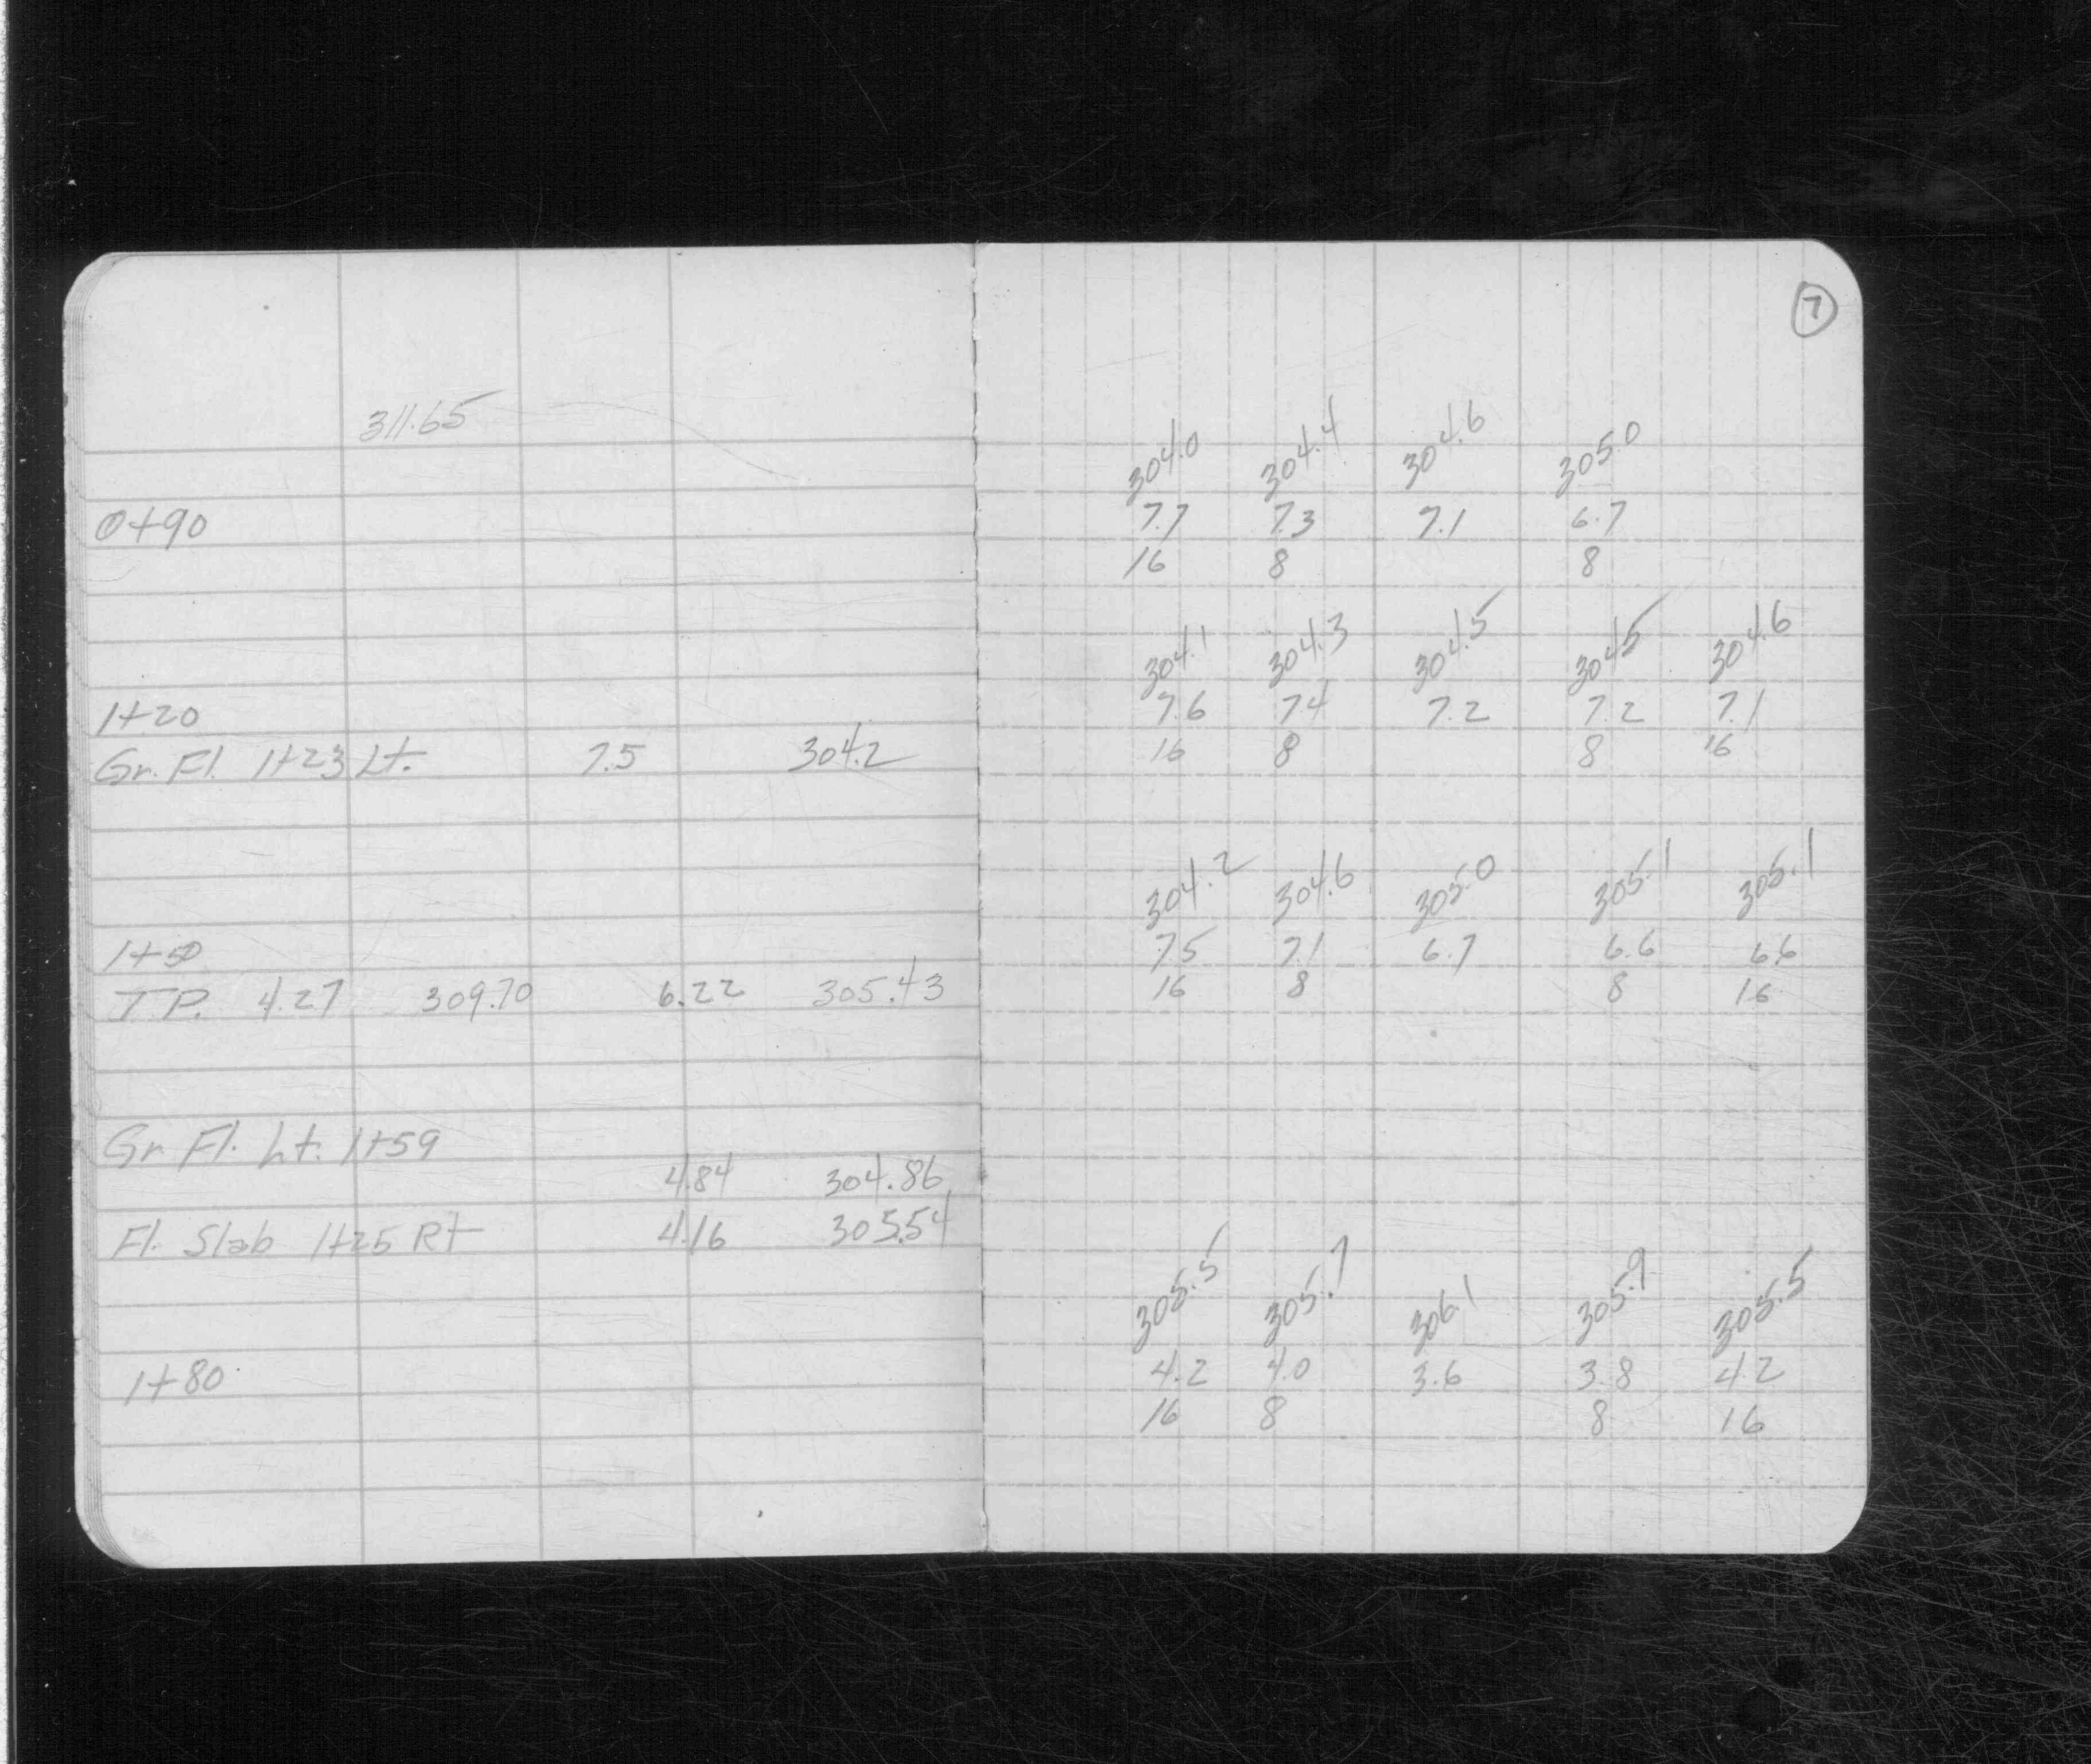 7
311.65
304.0 304.4 304.6 305.0
0+90 7.7 7.3 7.1 6.7
16 8 8
304.1 304.3 304.5 304.5 304.6
1+20 7.6 7.4 7.2 7.2 7.1
Gr. Fl. 1+23 Lt. 7.5 304.2 16 8 8 16
304.2 304.6 305.0 305.1 305.1
1+50 7.5 7.1 6.7 6.6 6.6
T.P. 4.27 309.70 6.22 305.43 16 8 8 16
Gr Fl. Lt. 1+59
4.84 304.86
Fl. Slab 1+25 Rt 4.16 305.54
305.5 305.7 306.1 305.9 305.5
1+80 4.2 4.0 3.6 3.8 4.2
16 8 8 16